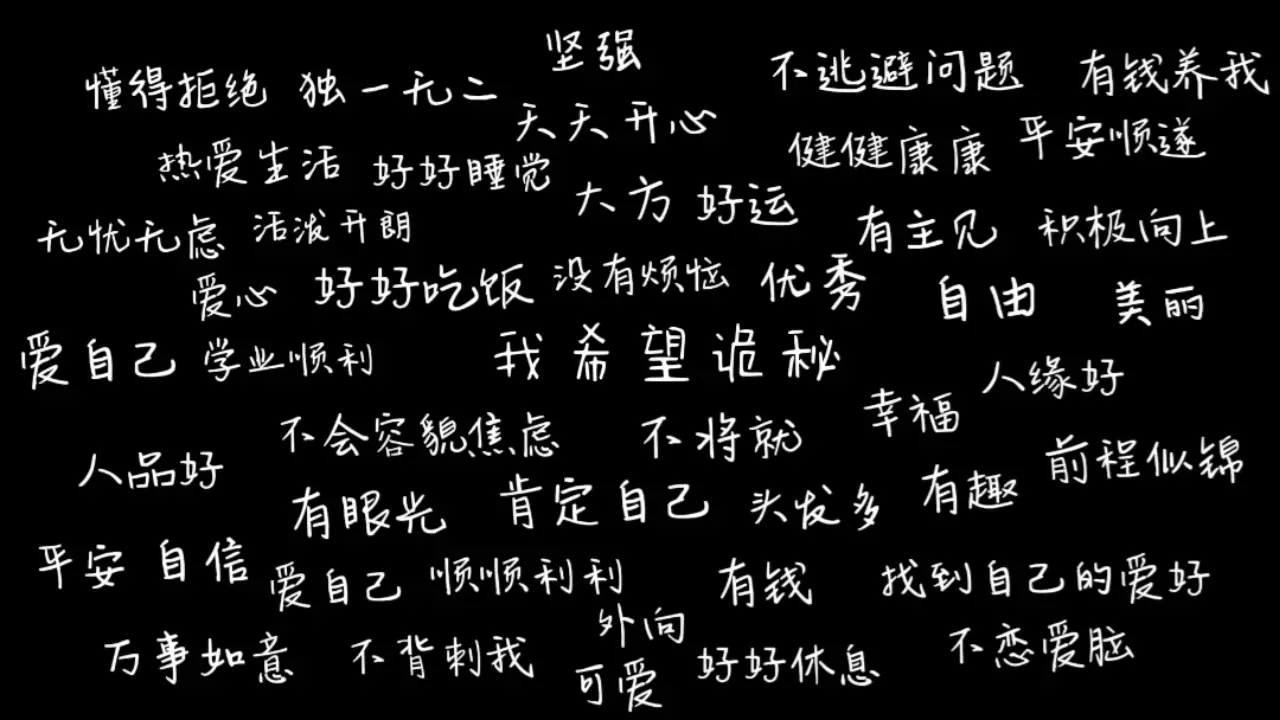 坚强
懂得拒绝 独一无二
不逃避问题 有钱养我
天天开心
热爱生活 好好睡觉
健健康康 平安顺遂
大方 好运
无忧无虑 活泼开朗
有主见 积极向上
爱心 好好吃饭 没有烦恼 优秀
自由 美丽
爱自己 学业顺利
我希望诡秘
人缘好
不会容貌焦虑 不将就 幸福
人品好
前程似锦
有眼光 肯定自己 头发多 有趣
平安 自信 爱自己 顺顺利利 有钱 找到自己的爱好
外向
万事如意 不背刺我
可爱 好好休息 不恋爱脑